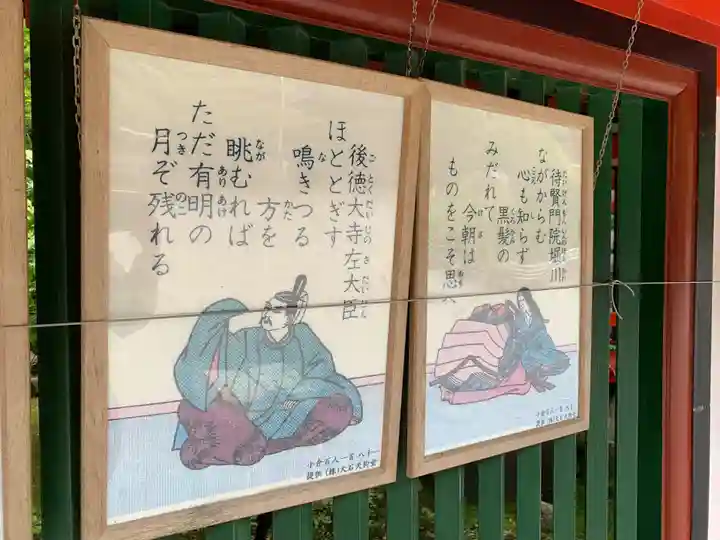 待賢門院堀川
ながからむ
心も知らず
黒髪の
みだれて
今朝は
ものをこそ思へ
小倉百人一首 八十
後徳大寺左大臣
ほととぎす
鳴きつる
方を
眺むれば
ただ有明の
月ぞ残れる
小倉百人一首 八十一
提供 (株)大石天狗堂